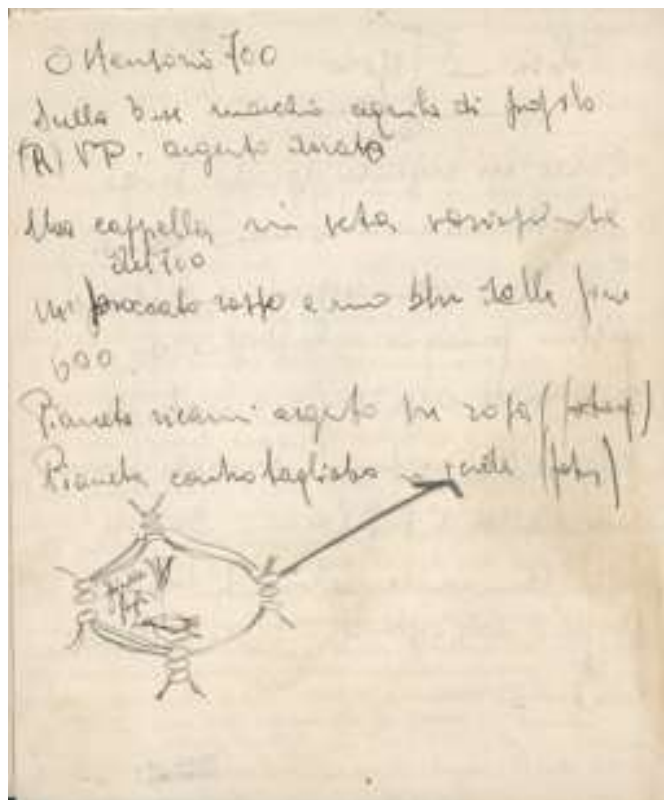 Ostensorio 700
Sulla base marchio aquila di profilo
(R) VP. argento dorato
Una cappella in seta variopinta
del 700
un broccato rosso e uno blu della fine
600
Pianeta ricami argento su rosa (
Pianeta contro tagliata verde (foto)